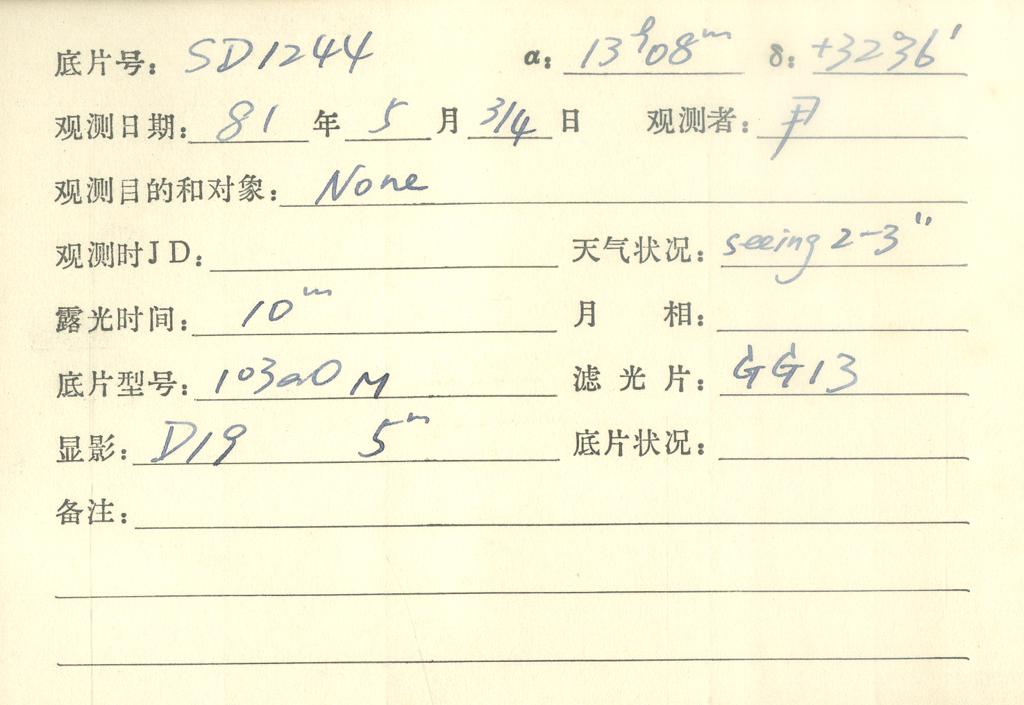 底片号: SD1244 α: 13ʰ08ᵐ δ: +32°36′
观测日期: 81 年 5 月 3/4 日 观测者: 尹
观测目的和对象: None
观测时JD: 天气状况: seeing 2-3″
露光时间: 10ᵐ 月 相:
底片型号: 103aO M 滤光片: GG13
显影: D19 5ᵐ 底片状况:
备注: